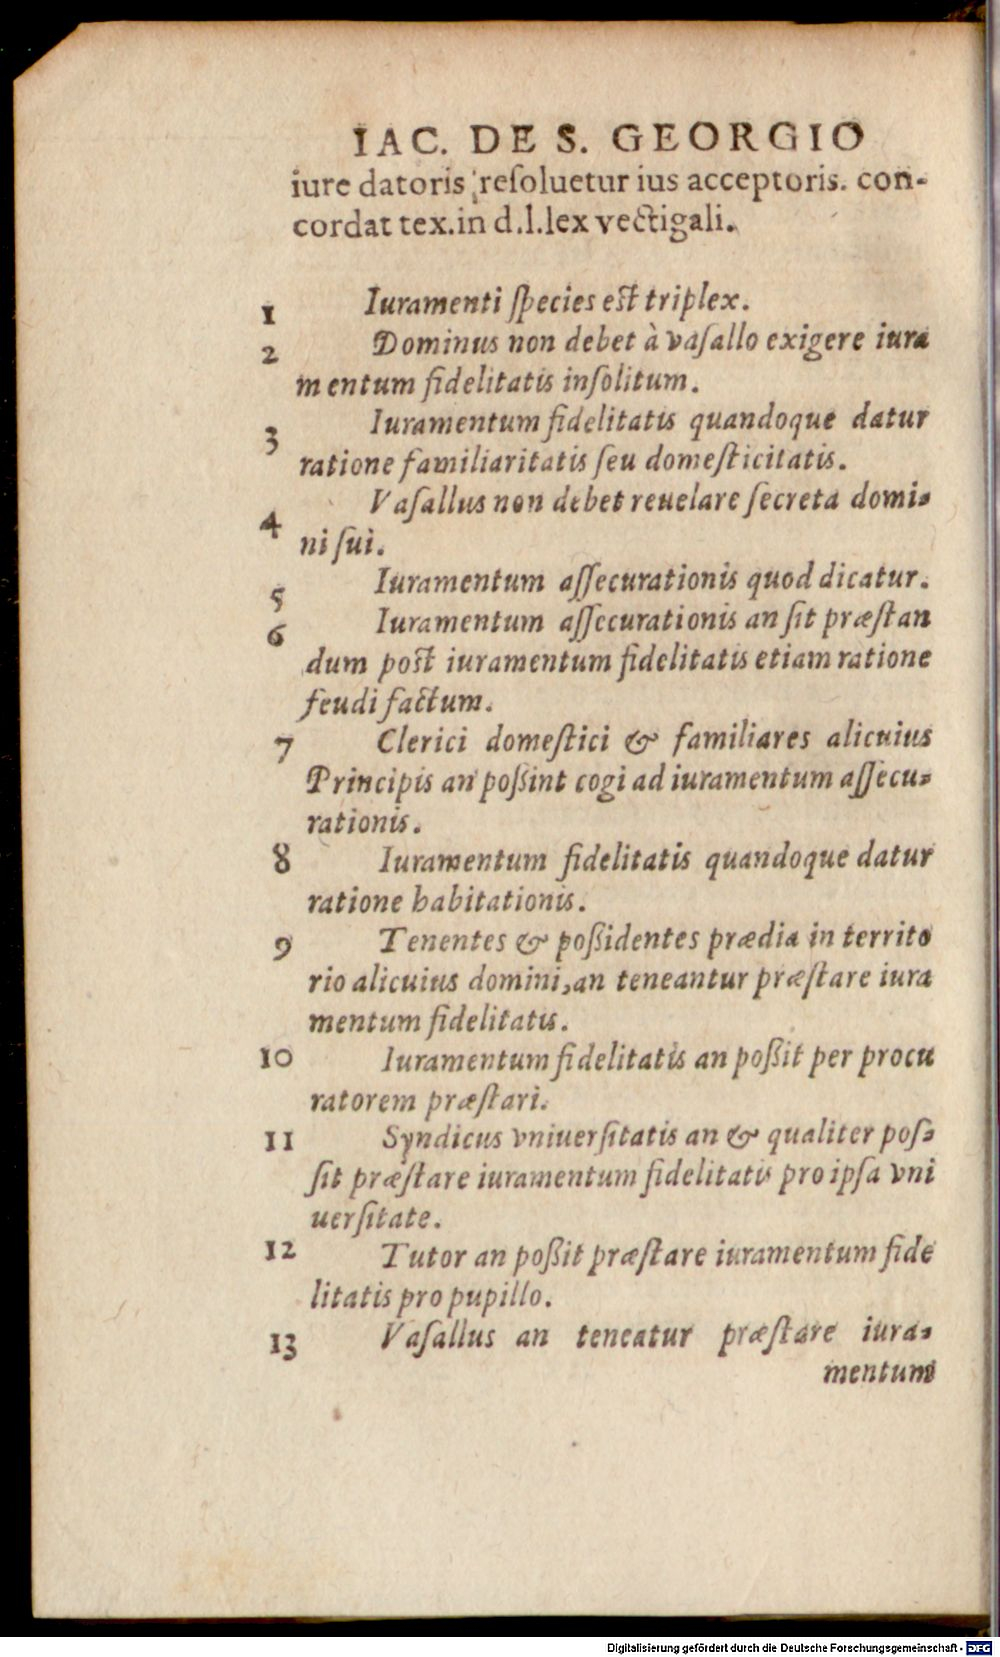 IAC. DE S. GEORGIO
iure datoris resoluetur ius acceptoris. con-
cordat tex.in d.l.lex vectigali.
1 Iuramenti species est triplex.
2 Dominus non debet à vasallo exigere iura
mentum fidelitatis insolitum.
3 Iuramentum fidelitatis quandoque datur
ratione familiaritatis seu domesticitatis.
4 Vasallus non debet reuelare secreta domi-
ni sui.
5 Iuramentum assecurationis quod dicatur.
6 Iuramentum assecurationis an sit præstan
dum post iuramentum fidelitatis etiam ratione
feudi factum.
7 Clerici domestici & familiares alicuius
Principis an poßint cogi ad iuramentum assecu-
rationis.
8 Iuramentum fidelitatis quandoque datur
ratione habitationis.
9 Tenentes & poßidentes prædia in territo
rio alicuius domini, an teneantur præstare iura
mentum fidelitatis.
10 Iuramentum fidelitatis an poßit per procu
ratorem præstari.
11 Syndicus vniuersitatis an & qualiter pos-
sit præstare iuramentum fidelitatis pro ipsa vni
uersitate.
12 Tutor an poßit præstare iuramentum fide
litatis pro pupillo.
13 Vasallus an teneatur præstare iura-
mentum
Digitalisierung gefördert durch die Deutsche Forschungsgemeinschaft - DFG